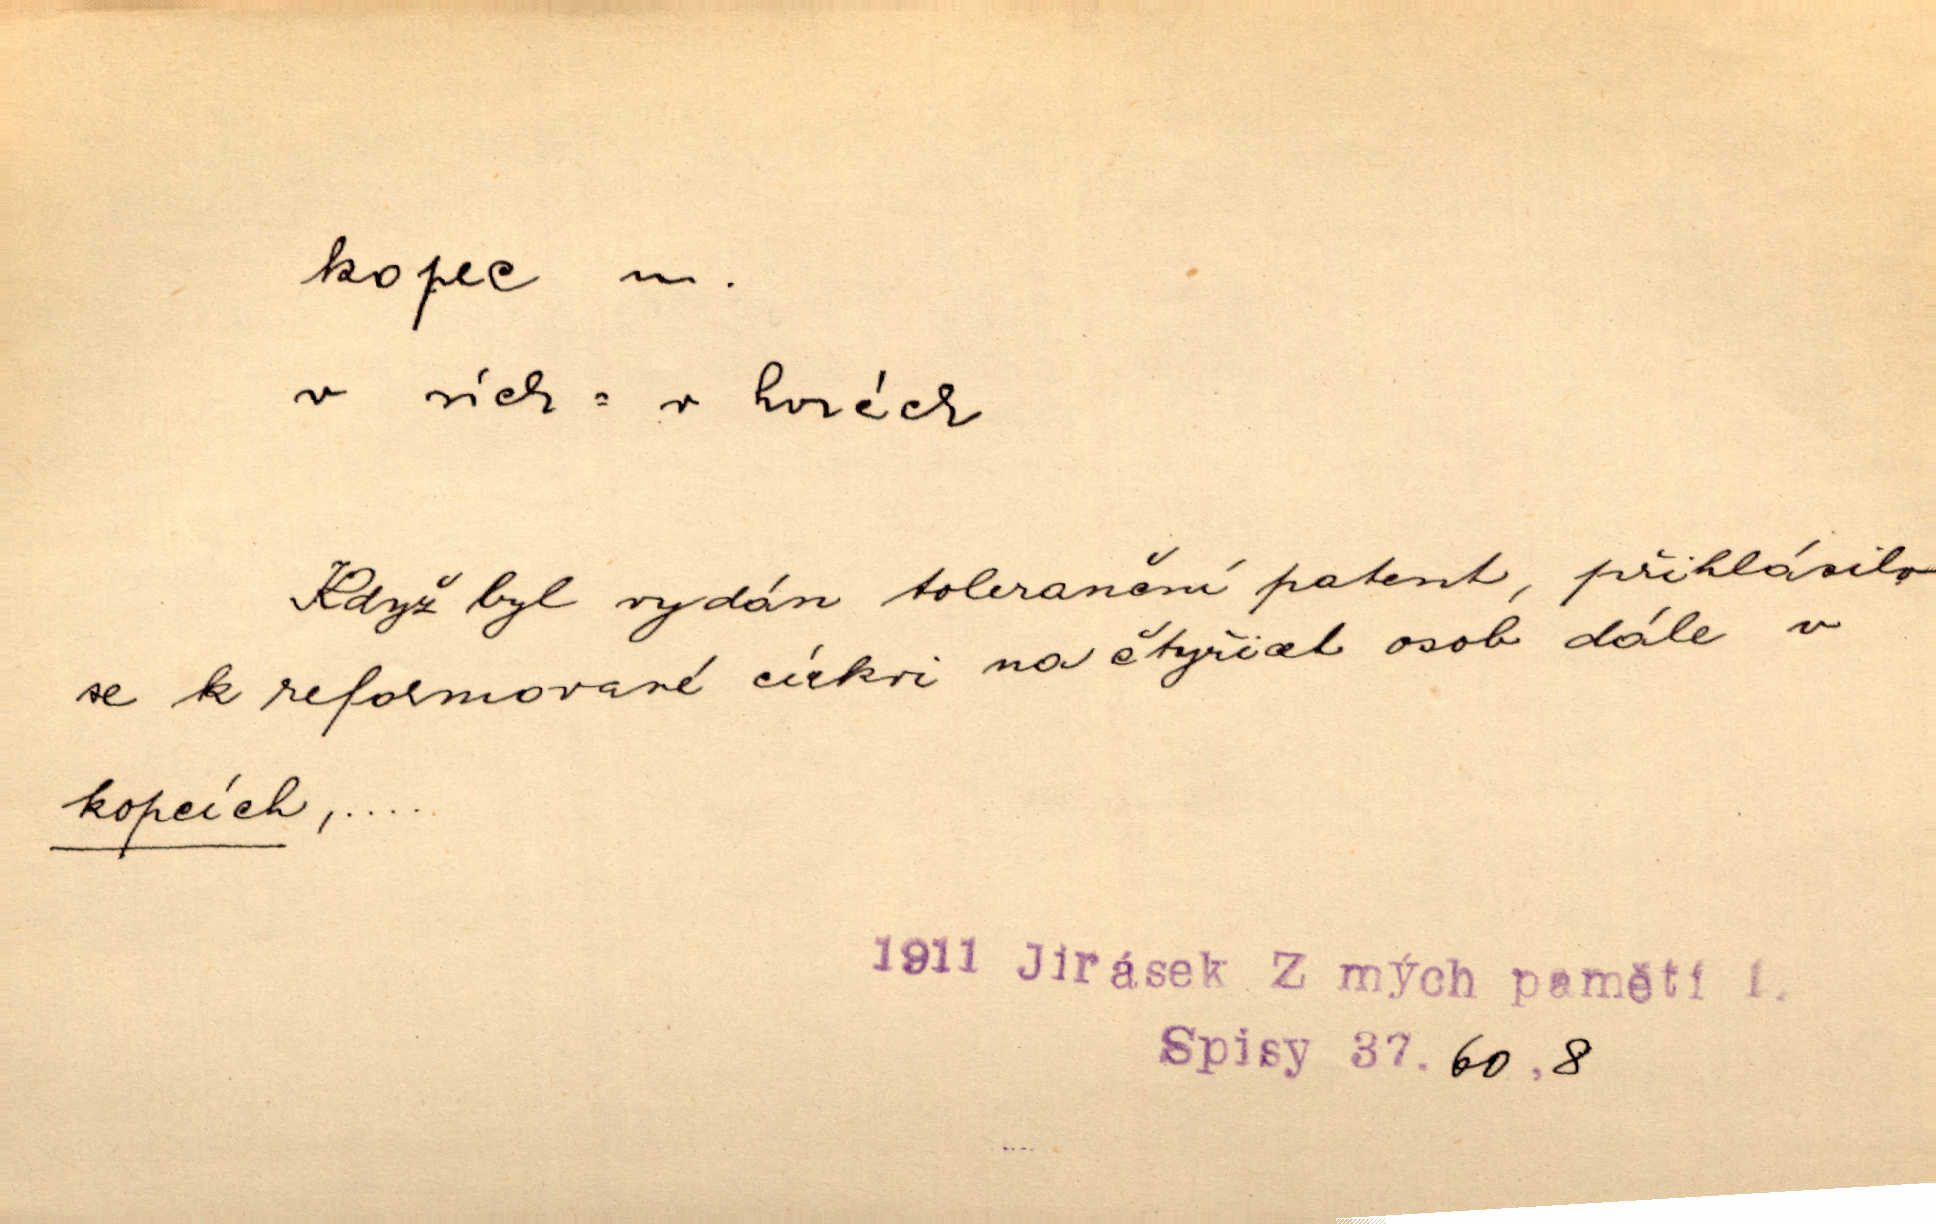 kopec m.
v ních = v horách
Když byl vydán toleranční patent, přihlásilo
se k reformované církvi na čtyřicet osob dále v
kopcích, ....
1911 Jirásek Z mých pamětí i.
Spisy 37. 60,8